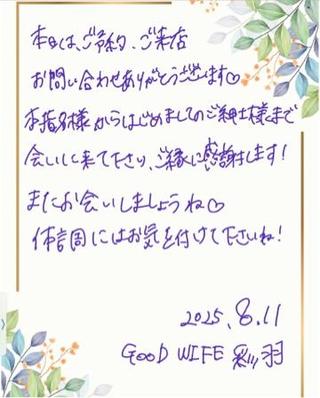 本日は、ご予約、ご来店
お問い合わせありがとうございます♡
本指名様からはじめましてのご紳士様まで
会いに来て下さり、ご縁に感謝します!
またお会いしましょうね♡
体調にはお気を付けて下さいね!
2025.8.11
GOOD WIFE 羽